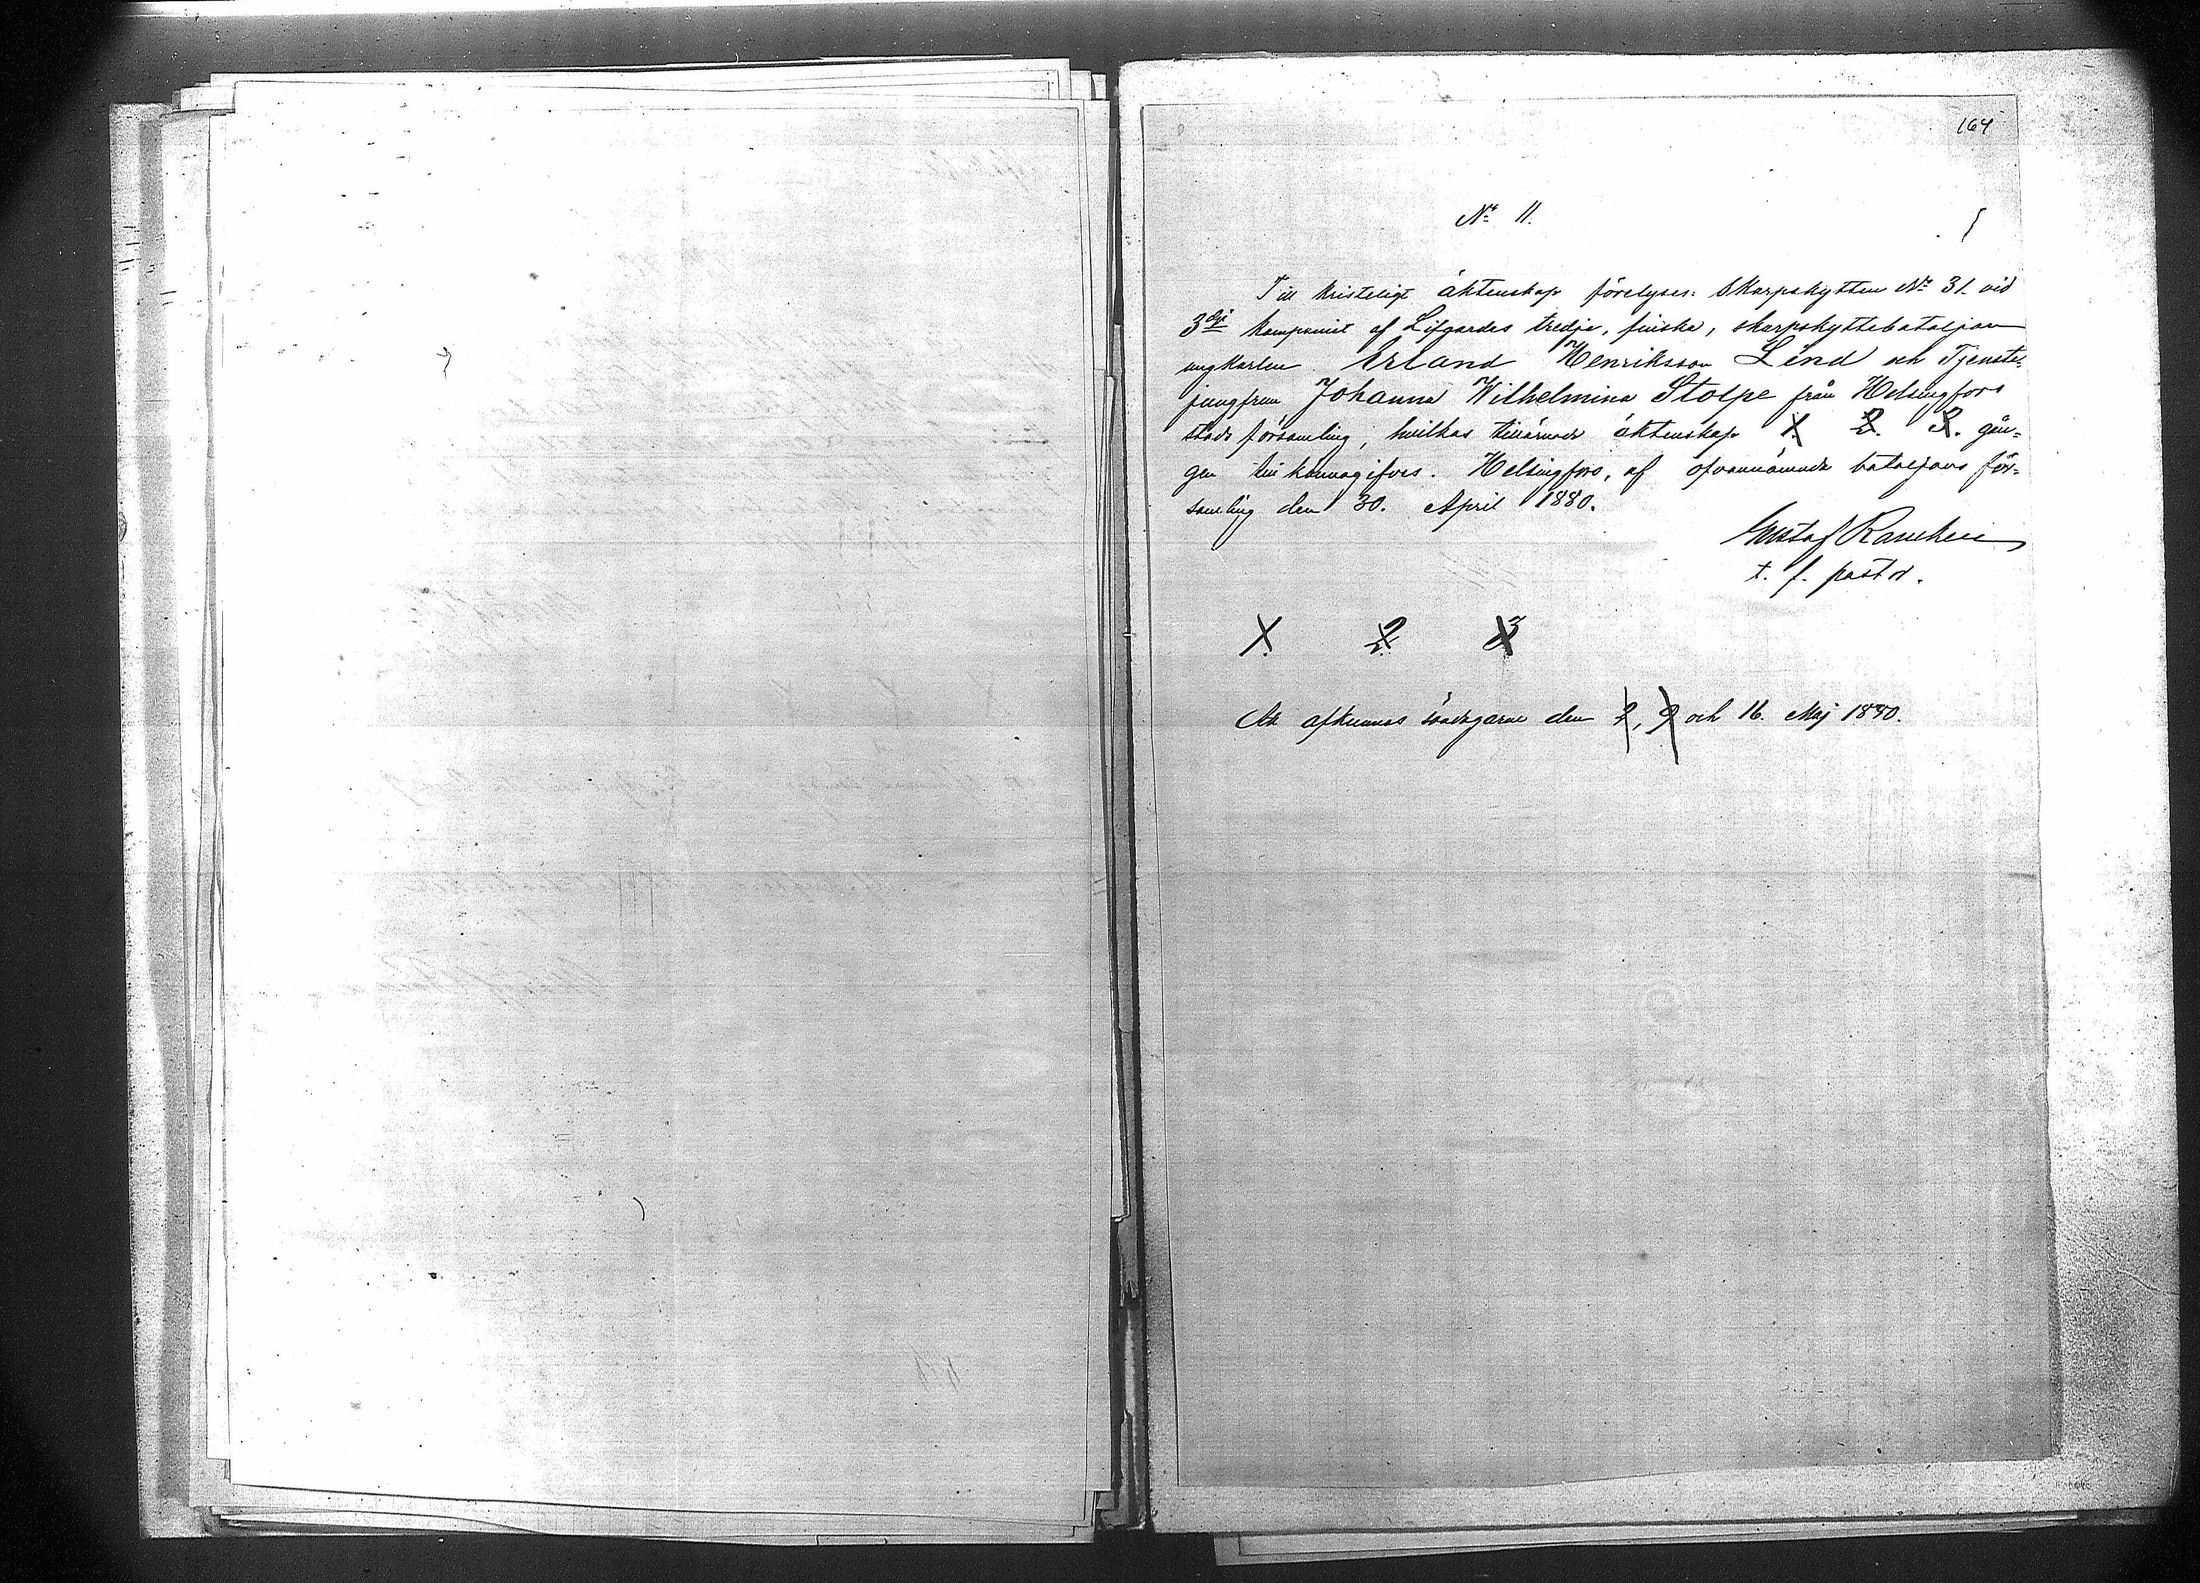 164
No 11.
Till kristeligt äktenskap förelyses: Skarpskytten No 31. vid
3dje kompaniet af Lifgardes tredje, finska, skarpskyttebataljon
ungkarlen Erland Henriksson Lind och Tjenste-
jungfrun Johanna Wilhelmina Stolpe från Helsingfors
stads församling, hvilkas tillärnade äktenskap 1. 2. 3. gån-
gen tillkännagifves. Helsingfors, af ofvannämnda bataljons för-
samling den 30. April 1880.
Gustaf
t. f. pastor.
1. 2. 3
Att afkunnas söndagarne den 2, 9 och 16. Maj 1880.